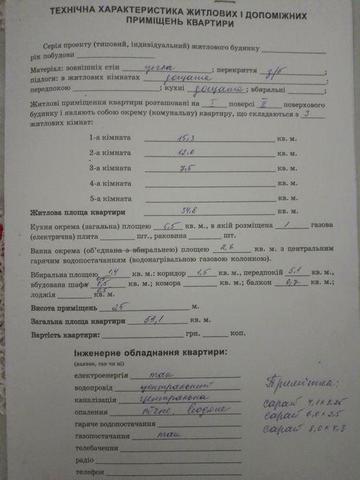 ТЕХНІЧНА ХАРАКТЕРИСТИКА ЖИТЛОВИХ І ДОПОМІЖНИХ
ПРИМІЩЕНЬ КВАРТИРИ
Серія проекту (типовий, індивідуальний) житлового будинку
рік побудови
Матеріал: зовнішніх стін цегла; перекриття з/б;
підлоги: в житлових кімнатах дощата
передпокою ; кухні дощаті; вбиральні ;
Житлові приміщення квартири розташовані на І поверсі ІІ поверхового
будинку і являють собою окрему (комунальну) квартиру, що складаються з 3
житлових кімнат:
1-а кімната 15,3 кв. м.
2-а кімната 12,0 кв. м.
3-а кімната 7,5 кв. м.
4-а кімната кв. м.
5-а кімната кв. м.
Житлова площа квартири 34,8 кв. м.
Кухня окрема (загальна) площею 6,5 кв. м., в якій розміщена 1 газова
(електрична) плита шт., раковина шт.
Ванна окрема (об'єднана з вбиральнею) площею 2,6 кв. м. з центральним
гарячим водопостачанням (водонагрівальною газовою колонкою).
Вбиральна площею 1,4 кв. м: коридор 1,5 кв. м., передпокій 5,1 кв. м.,
вбудована шафа 0,5 кв. м; комора кв. м.; балкон 0,7 кв. м;
лоджія кв. м.
Висота приміщень 25 м.
Загальна площа квартири 59,1 кв. м.
Вартість квартири: грн. коп.
Інженерне обладнання квартири:
(вказати, так чи ні)
електроенергія так
водопровід центральний
каналізація центральна
опалення пічне, водяне
гаряче водопостачання
газопостачання так
телебачення
радіо
телефон
Примітка:
сарай 4,1х2,25
сарай 6,0х2,5
сарай 8,0х4,3